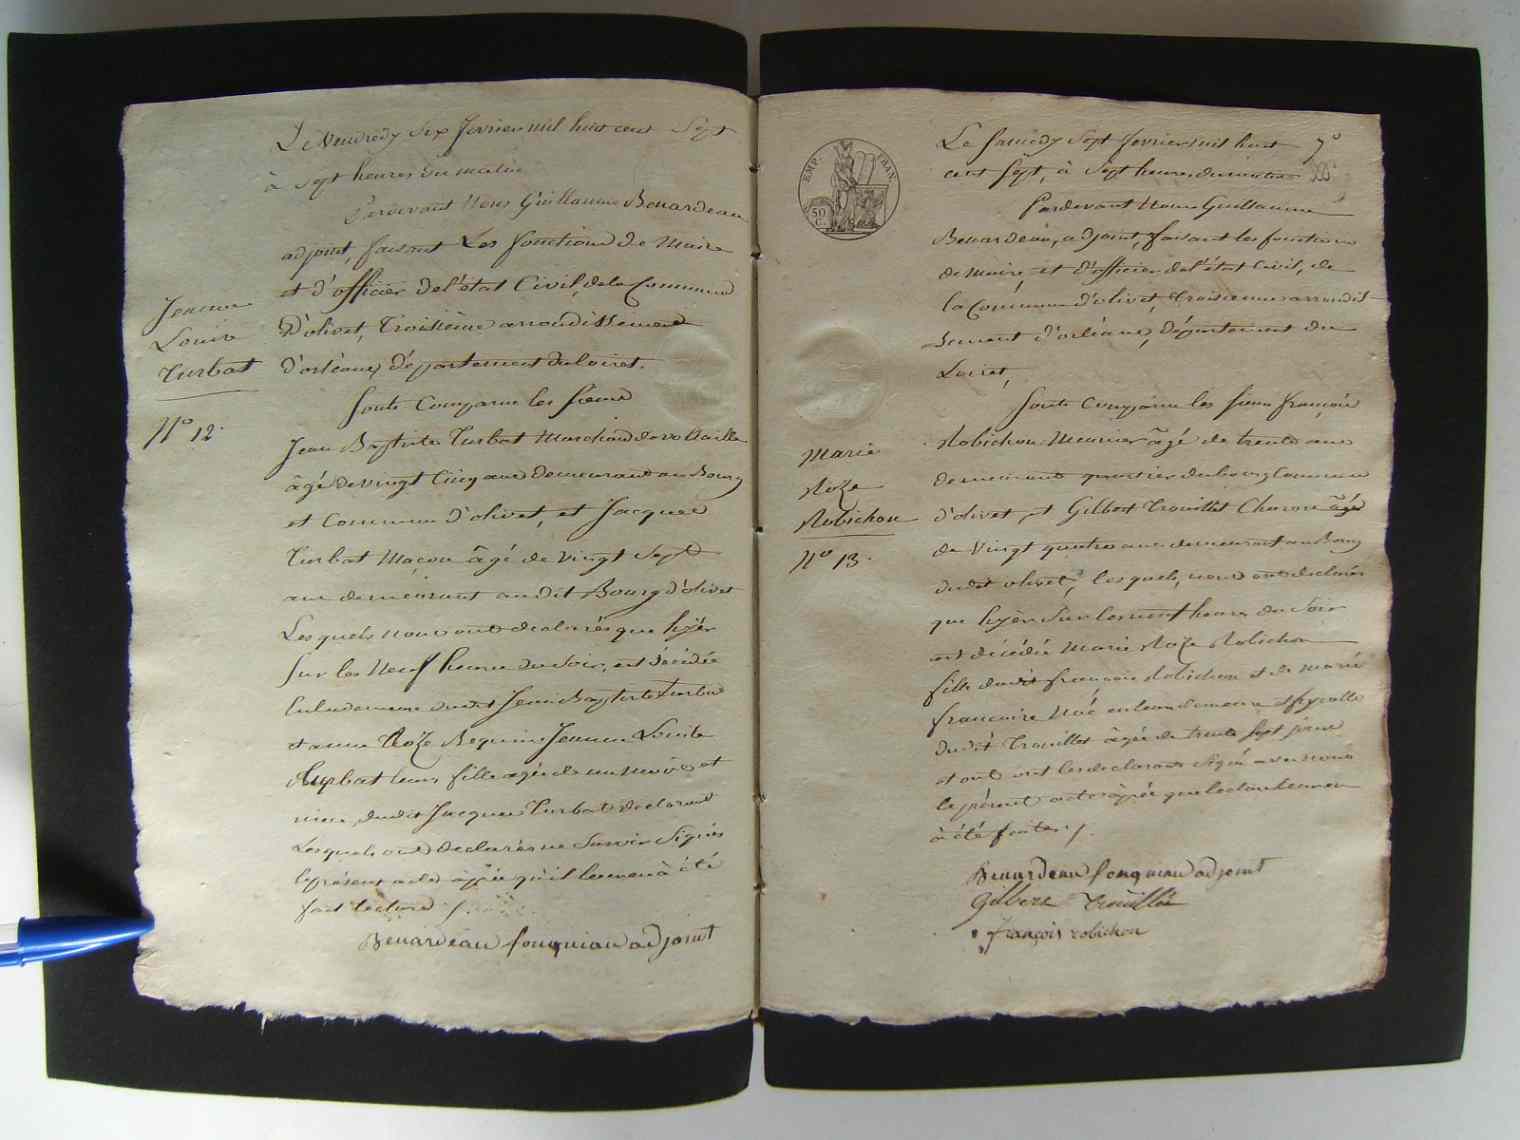 Le Vendredy Six fevrier mil huit cent Sept
à Sept heures du matin
Pardevant Nous Guillaume Benardeau
adjoint, faisant Les fonctions de Maire
et d'officier de l'état Civil, de la Commune
D'olivet, Troisième arrondissement
d'orléans, département du loiret.
Sont Comparus les sieurs
Jeanne
Louise
Turbat
N° 12.
Jean Baptiste Turbat Marchand de volaille
âgé de vingt Cinq ans demeurant au Bourg
et Commune d'olivet, et Jacques
Turbat Maçon âgé de vingt Sept
ans demeurant audit Bourg d'olivet
Lesquels nous ont declarés que hyer
Sur les Neuf heures du Soir, est décédée
En la demeure dudit Jean Baptiste Turbat
et anne Roze Bequin Jeanne Louise
Turbat leur fille agée de un mois et
niece dudit Jacques Turbat declarant
Lesquels ont declarés ne Savoir Signer
le présent acte après qu'il leur en à été
fait lecture /.
Benardeau fouqueau adjoint
EMP. FRAN.
50
C.
Le Samedy Sept fevrier mil huit
cent Sept, à Sept heures du matin
7e
Pardevant Nous Guillaume
Benardeau, adjoint, faisant les fonctions
de maire, et d'officier de l'état Civil, de
la Commune d'olivet, Troisieme arrondis-
sement d'orléans, département du
Loiret,
Sont Comparus les sieurs françois
Robichon Meunier âgé de trente ans
demeurant quartier du bourg Commune
d'olivet, et Gilbert Trouillet Charon âgé
de Vingt quatre ans demeurant au Bourg
dudit olivet, lesquels, nous ont declarés
que hyer Sur les neuf heures du Soir
est décédée Marie Roze Robichon
fille dudit françois Robichon et de marie
francoise Noé en leur demeure
dudit Trouillet âgée de trente Sept jours
et ont les declarants Signé avec nous
le présent acte après que lecture leur en
à été faite /.
Marie
Roze
Robichon
N° 13.
Benardeau fouqueau adjoint
Gilbert Trouillet
françois robichon